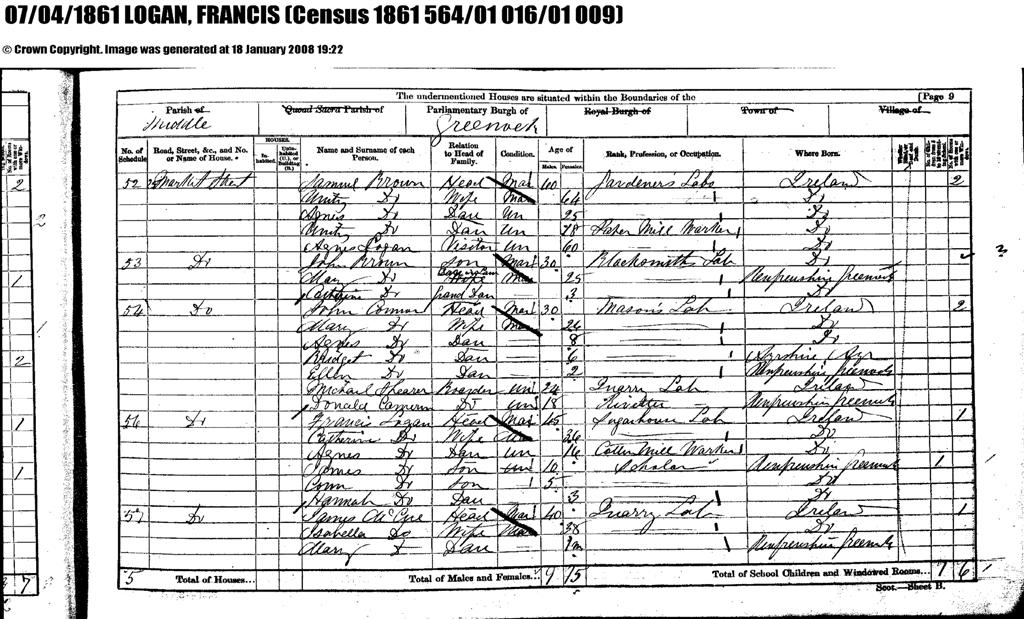 07/04/1861 LOGAN, FRANCIS (Census 1861 564/01 016/01 009)
© Crown Copyright. Image was generated at 18 January 2008 19:22
The undermentioned Houses are situated within the Boundaries of the [Page 9
Parish of Quoad Sacra Parish of Parliamentary Burgh of Royal Burgh of Town of Village of
Middle Greenock
No. of Schedule Road, Street, &c., and No. or Name of House. HOUSES. Inhabited. Uninhabited (U.), or Building (B.) Name and Surname of each Person. Relation to Head of Family. Condition. Age of Males. Females. Rank, Profession, or Occupation. Where Born.
52 Market Street Samuel Brown Head Mar 60 Gardener's Lab Ireland 2
Unity Do Wife Mar 64 Do
Agnes Do Dau Un 25 Do
Unity Do Dau Un 28 Paper Mill Worker Do
Agnes Logan Visitor Un 60 Do
53 Do John Brown Son Mar 30 Blacksmith's Lab Do
Mary Do Wife Mar 25 Renfrewshire Greenock
Catherine Do Grand Dau 3 Do
54 Do John Connor Head Mar 30 Mason's Lab Ireland 2
Mary Do Wife Mar 26 Do
Agnes Do Dau 8 Do
Bridget Do Dau 6 Ayrshire Ayr
Ellen Do Dau 2 Renfrewshire Greenock
Michael Shearer Boarder Un 24 Quarry Lab Ireland
Donald Cameron Do Un 18 Rivetter Renfrewshire Greenock
56 Do Francis Logan Head Mar 45 Sugarhouse Lab Ireland 1
Catherine Do Wife 36 Do
Agnes Do Dau Un 16 Cotton Mill Worker Do
James Do Son Un 10 Scholar Renfrewshire Greenock 1
Do Son 5 Do
Hannah Do Dau 3 Do
57 Do James Head Mar 40 Quarry Lab Ireland 1
Isabella Do Wife Mar 38 Do
Mary Do Dau 1m Renfrewshire Greenock
5 Total of Houses... Total of Males and Females... 9 15 Total of School Children and Windowed Rooms... 1 6
Scot.—Sheet B.